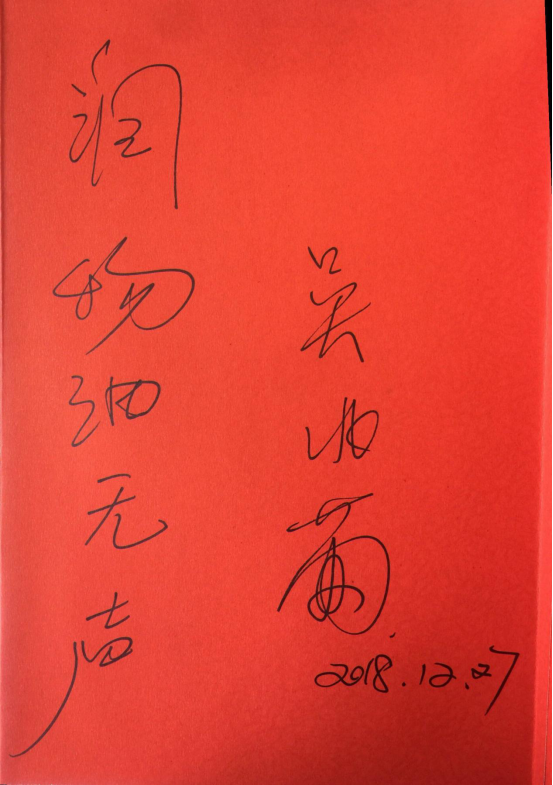 润物细无声
吴
2018.12.27